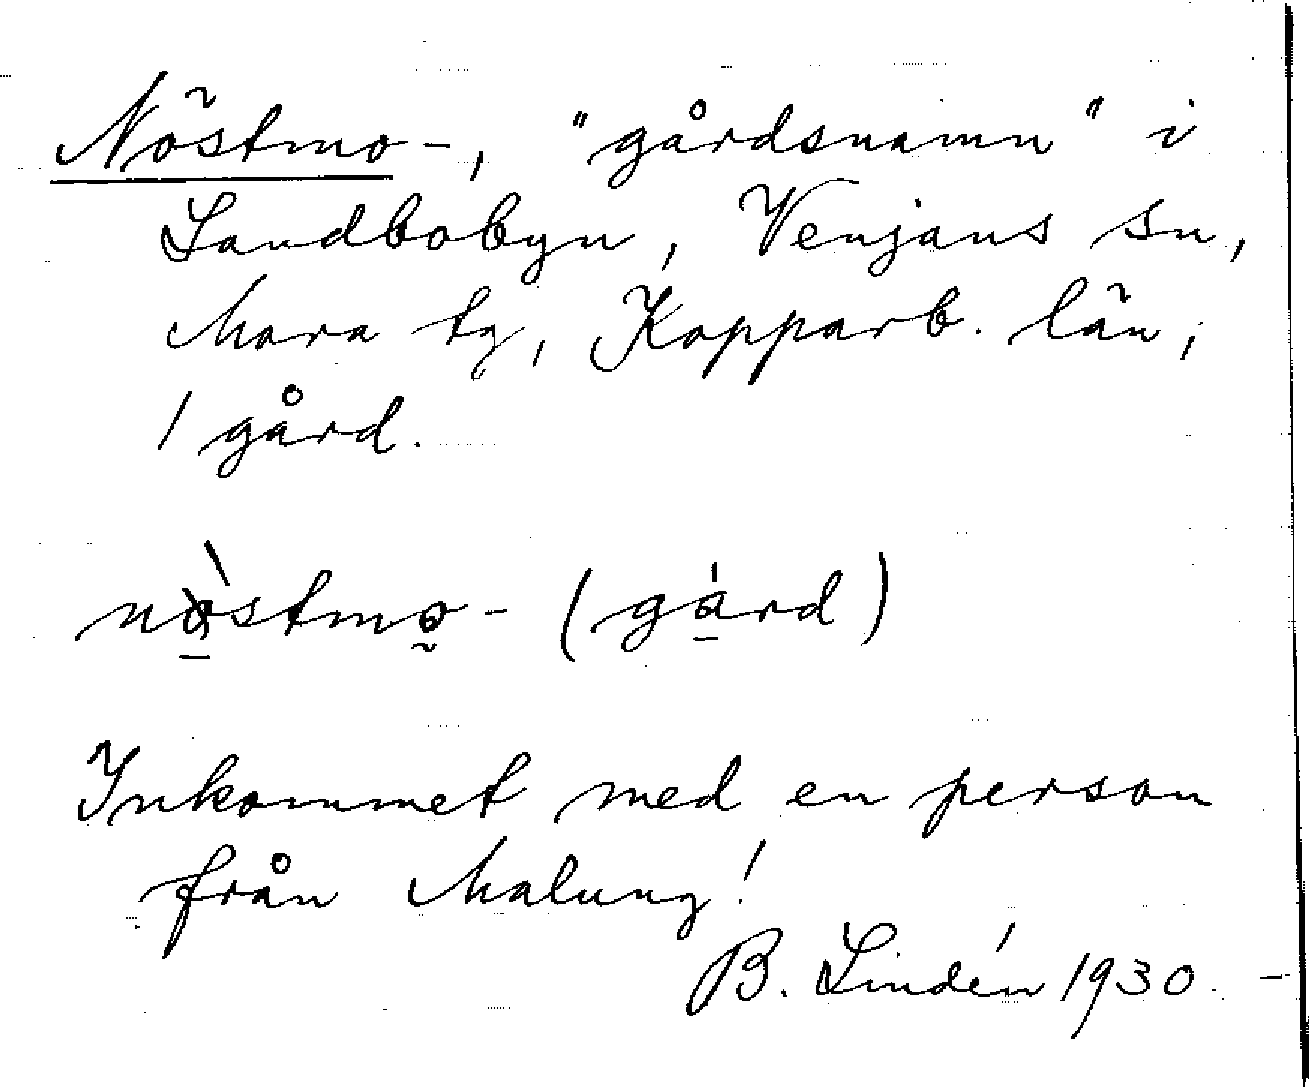 Nöstmo-, "gårdsnamn" i
Landbobyn, Venjans sn,
Mora tg, Kopparb. län,
1 gård.
nòstmo̰- (gård)
Inkommet med en person
från Malung!
B. Lindén 1930.